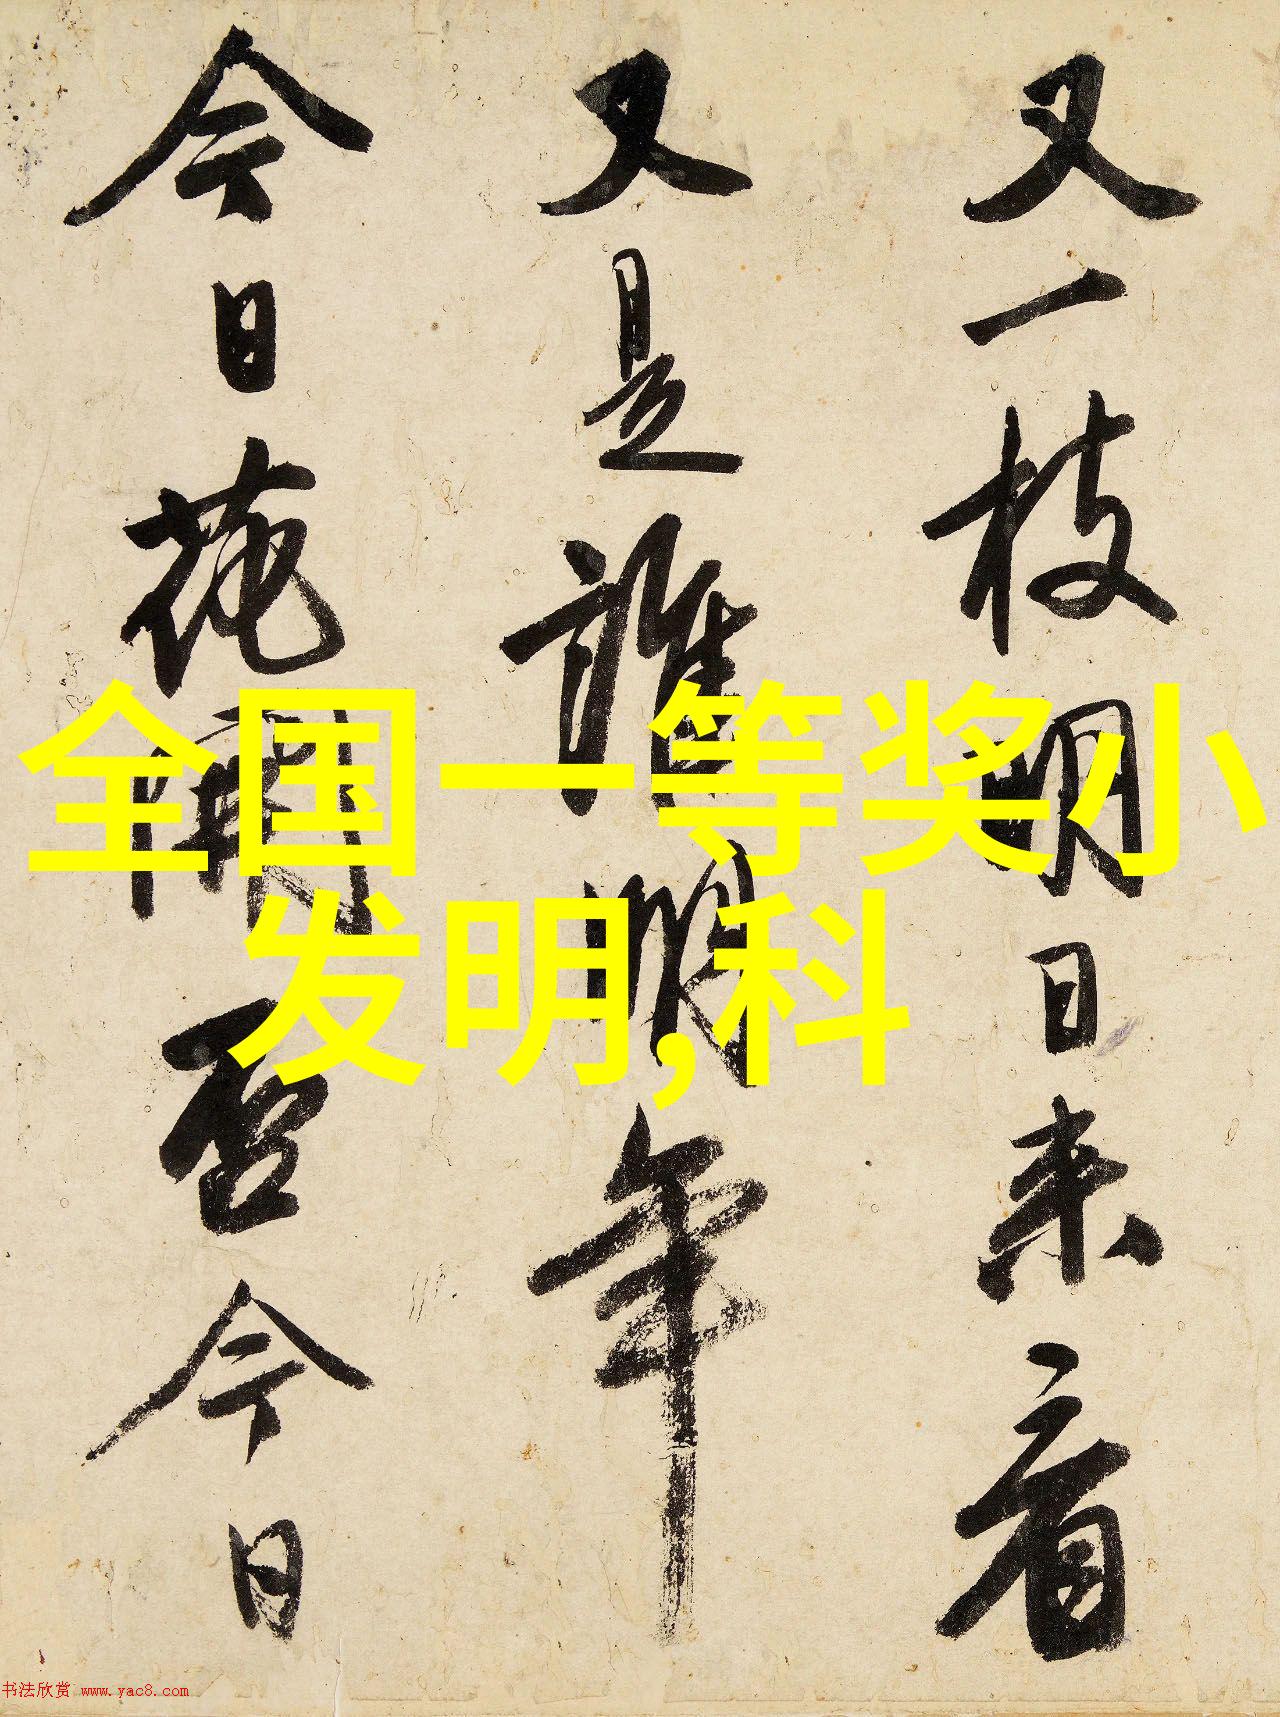 又一枝明日来看
又是誰明年
今日花開否今日
全国一等奖小
发明,科
书法欣赏 www.yac8.com